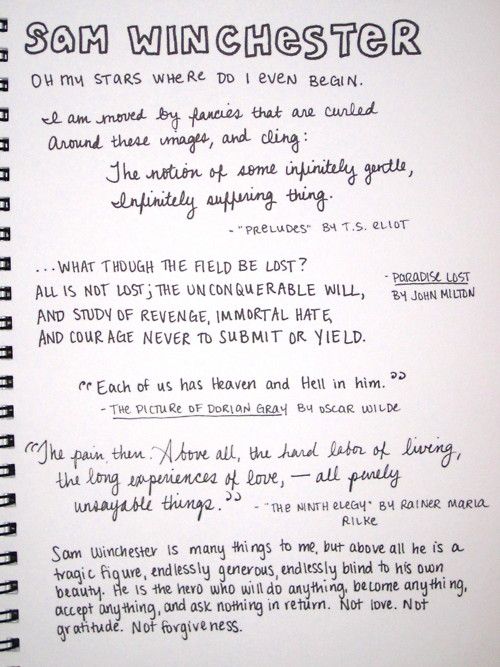 SAM WINCHESTER
OH MY STARS WHERE DO I EVEN BEGIN.
I am moved by fancies that are curled
Around these images, and cling:
The notion of some infinitely gentle,
Infinitely suffering thing.
- "PRELUDES" BY T.S. ELIOT
...WHAT THOUGH THE FIELD BE LOST?
ALL IS NOT LOST; THE UNCONQUERABLE WILL,
AND STUDY OF REVENGE, IMMORTAL HATE,
AND COURAGE NEVER TO SUBMIT OR YIELD.
- PARADISE LOST
BY JOHN MILTON
"Each of us has Heaven and Hell in him."
- THE PICTURE OF DORIAN GRAY BY OSCAR WILDE
"The pain, then. Above all, the hard labor of living,
the long experiences of love, — all purely
unsayable things."
- "THE NINTH ELEGY" BY RAINER MARIA
RILKE
Sam Winchester is many things to me, but above all he is a
tragic figure, endlessly generous, endlessly blind to his own
beauty. He is the hero who will do anything, become anything,
accept anything, and ask nothing in return. Not love. Not
gratitude. Not forgiveness.